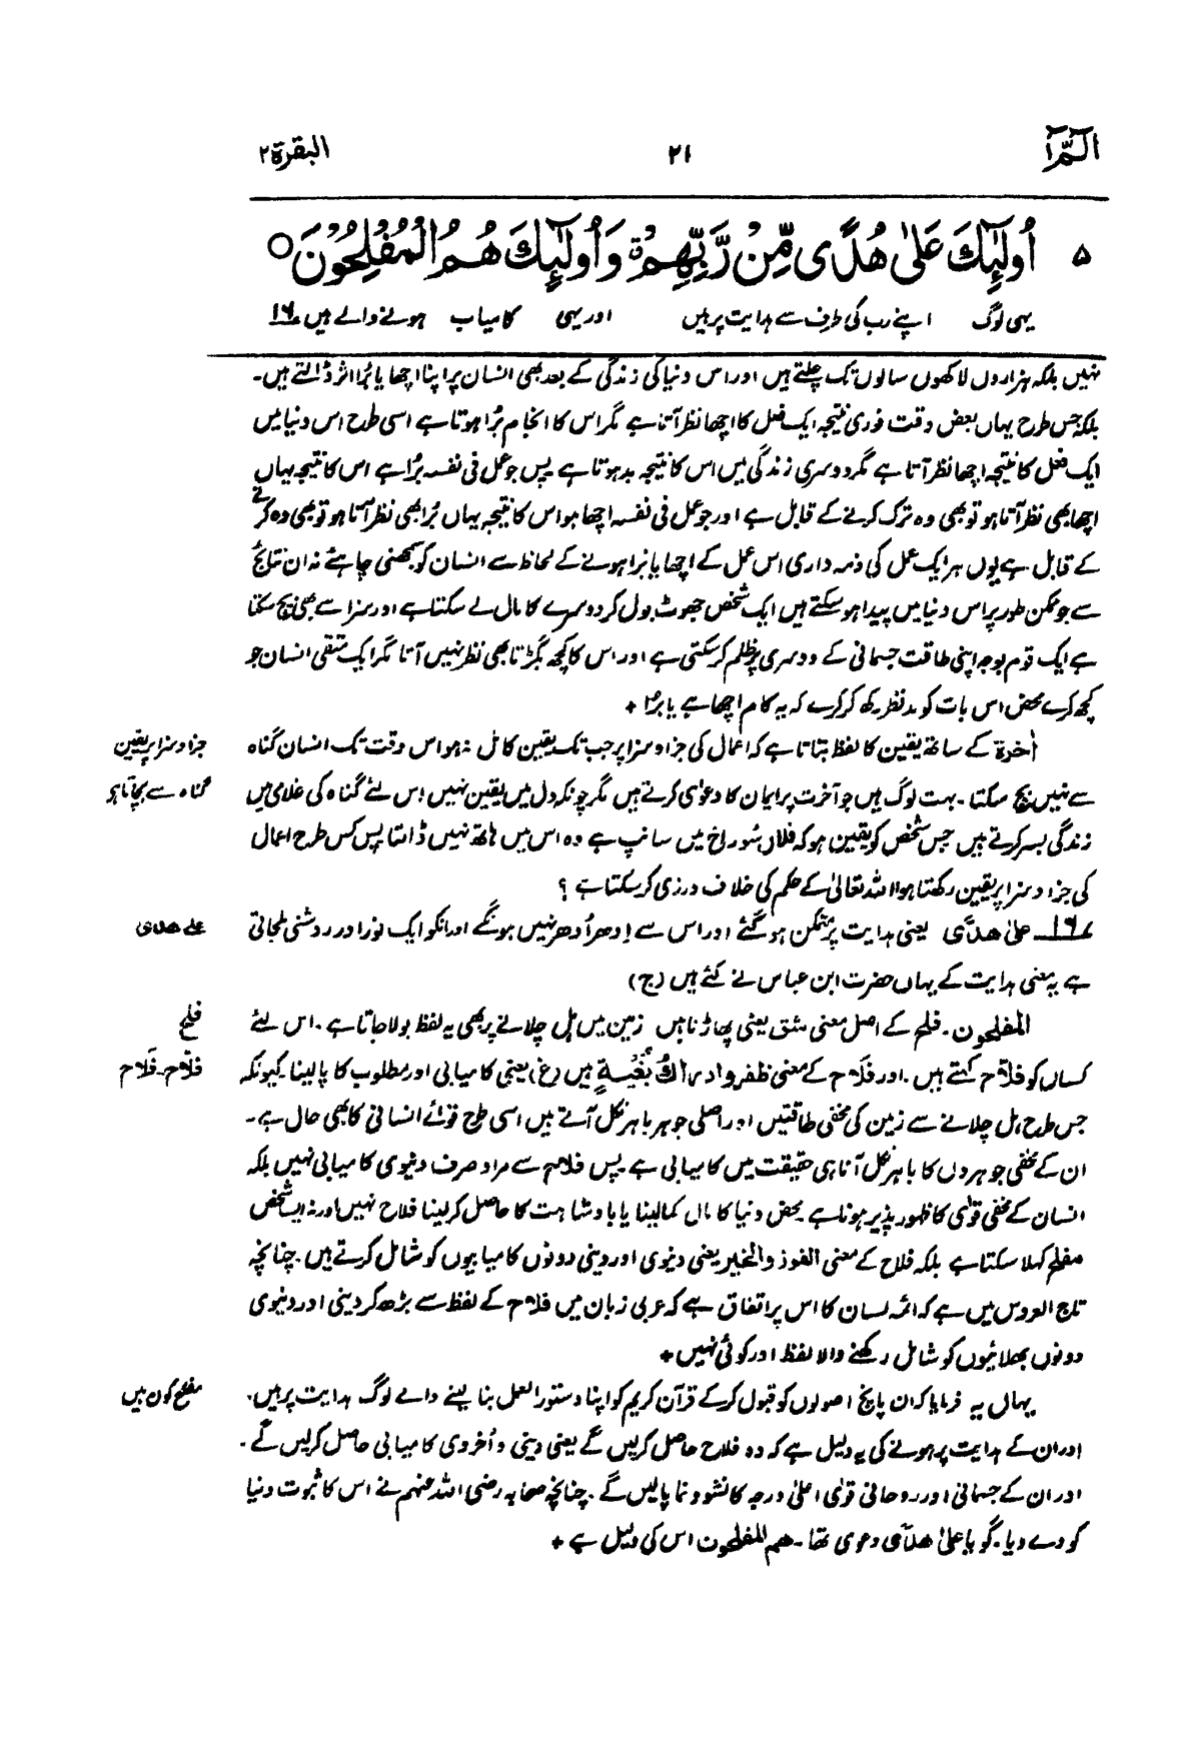 الٓمّٓ ۲۱ البقرة۲
۵ اُولٰٓئِكَ عَلٰى هُدًى مِّنْ رَّبِّهِمْ ۙ وَاُولٰٓئِكَ هُمُ الْمُفْلِحُوْنَ ○
یہی لوگ اپنے رب کی طرف سے ہدایت پر ہیں اور یہی کامیاب ہونے والے ہیں ۱۶
نہیں بلکہ ہزاروں لاکھوں سالوں تک چلتے ہیں اور اس دنیا کی زندگی کے بعد بھی انسان پر اپنا اچھا یا بُرا اثر ڈالتے ہیں۔
بلکہ جس طرح یہاں بعض وقت فوری نتیجہ ایک فعل کا اچھا نظر آتا ہے مگر اس کا انجام بُرا ہوتا ہے اسی طرح اس دنیا میں
ایک فعل کا نتیجہ اچھا نظر آتا ہے مگر دوسری زندگی میں اس کا نتیجہ بد ہوتا ہے پس جو عمل فی نفسہ بُرا ہے اس کا نتیجہ یہاں
اچھا بھی نظر آتا ہو تو بھی وہ ترک کرنے کے قابل ہے اور جو عمل فی نفسہ اچھا ہو اس کا نتیجہ یہاں بُرا بھی نظر آتا ہو تو بھی وہ کرنے
کے قابل ہے یوں ہر ایک عمل کی ذمہ داری اس عمل کے اچھا یا بُرا ہونے کے لحاظ سے انسان کو سمجھنی چاہئے نہ ان نتائج
سے جو ممکن طور پر اس دنیا میں پیدا ہو سکتے ہیں ایک شخص جھوٹ بول کر دوسرے کا مال لے سکتا ہے اور سزا سے بھی بچ سکتا
ہے ایک قوم بوجہ اپنی طاقت جسمانی کے دوسری پر ظلم کر سکتی ہے اور اس کا کچھ بگڑتا بھی نظر نہیں آتا مگر ایک متقی انسان جو
کچھ کرے محض اس بات کو مد نظر رکھ کر کرے کہ یہ کام اچھا ہے یا بُرا +
اٰخرۃ کے ساتھ یقین کا لفظ بتاتا ہے کہ اعمال کی جزا و سزا پر جب تک یقین کامل نہ ہو اس وقت تک انسان گناہ
جزا و سزا پر یقین
سے نہیں بچ سکتا۔ بہت لوگ ہیں جو آخرت پر ایمان کا دعوٰی کرتے ہیں مگر چونکہ دل میں یقین نہیں اس لئے گناہ کی غلامی میں
گناہ سے بچاتا ہو
زندگی بسر کرتے ہیں جس شخص کو یقین ہو کہ فلاں سوراخ میں سانپ ہے وہ اس میں ہاتھ نہیں ڈالتا پس کس طرح اعمال
کی جزا و سزا پر یقین رکھتا ہوا اللہ تعالیٰ کے حکم کی خلاف ورزی کر سکتا ہے ؟
۱۶ علیٰ ھدًی یعنی ہدایت پر متمکن ہو گئے اور اس سے اِدھر اُدھر نہیں ہونگے اور انکو ایک نور اور روشنی ملجاتی
علے ھدی
ہے یہ معنی ہدایت کے یہاں حضرت ابن عباس نے کئے ہیں (ج)
المفلحون۔ فلح کے اصل معنی شق یعنی پھاڑنا ہیں زمین میں ہل چلانے پر بھی یہ لفظ بولا جاتا ہے۔ اس لئے
فلح
کسان کو فلّاح کہتے ہیں۔ اور فلَاح کے معنی ظفر و ادراك بُغْيةٍ ہیں (غ) یعنی کامیابی اور مطلوب کا پالینا۔ کیونکہ
فلّاح۔ فلَاح
جس طرح ہل چلانے سے زمین کی مخفی طاقتیں اور اصلی جوہر باہر نکل آتے ہیں اسی طرح قوائے انسانی کا بھی حال ہے۔
ان کے مخفی جوہروں کا باہر نکل آنا ہی حقیقت میں کامیابی ہے پس فلاح سے مراد صرف دنیوی کامیابی نہیں بلکہ
انسان کے مخفی قویٰ کا ظہور پذیر ہونا ہے محض دنیا کا مال کمالینا یا بادشاہت کا حاصل کر لینا فلاح نہیں اور نہ ایسا شخص
مفلح کہلا سکتا ہے بلکہ فلاح کے معنی الفوز والخیر یعنی دنیوی اور دینی دونوں کامیابیوں کو شامل کرتے ہیں۔ چنانچہ
تاج العروس میں ہے کہ ائمہ لسان کا اس پر اتفاق ہے کہ عربی زبان میں فلاح کے لفظ سے بڑھ کر دینی اور دنیوی
دونوں بھلائیوں کو شامل رکھنے والا لفظ اور کوئی نہیں +
یہاں یہ فرمایا کہ ان پانچ اصولوں کو قبول کر کے قرآن کریم کو اپنا دستور العمل بنا لینے والے لوگ ہدایت پر ہیں۔
مفلح کون ہیں
اور ان کے ہدایت پر ہونے کی یہ دلیل ہے کہ وہ فلاح حاصل کریں گے یعنی دینی و اُخروی کامیابی حاصل کر لیں گے۔
اور ان کے جسمانی اور روحانی قویٰ اعلیٰ درجہ کا نشو و نما پالیں گے۔ چنانچہ صحابہ رضی اللہ عنہم نے اس کا ثبوت دنیا
کو دے دیا۔ گویا علیٰ ھدًی دعوی تھا۔ ھم المفلحون اس کی دلیل ہے +